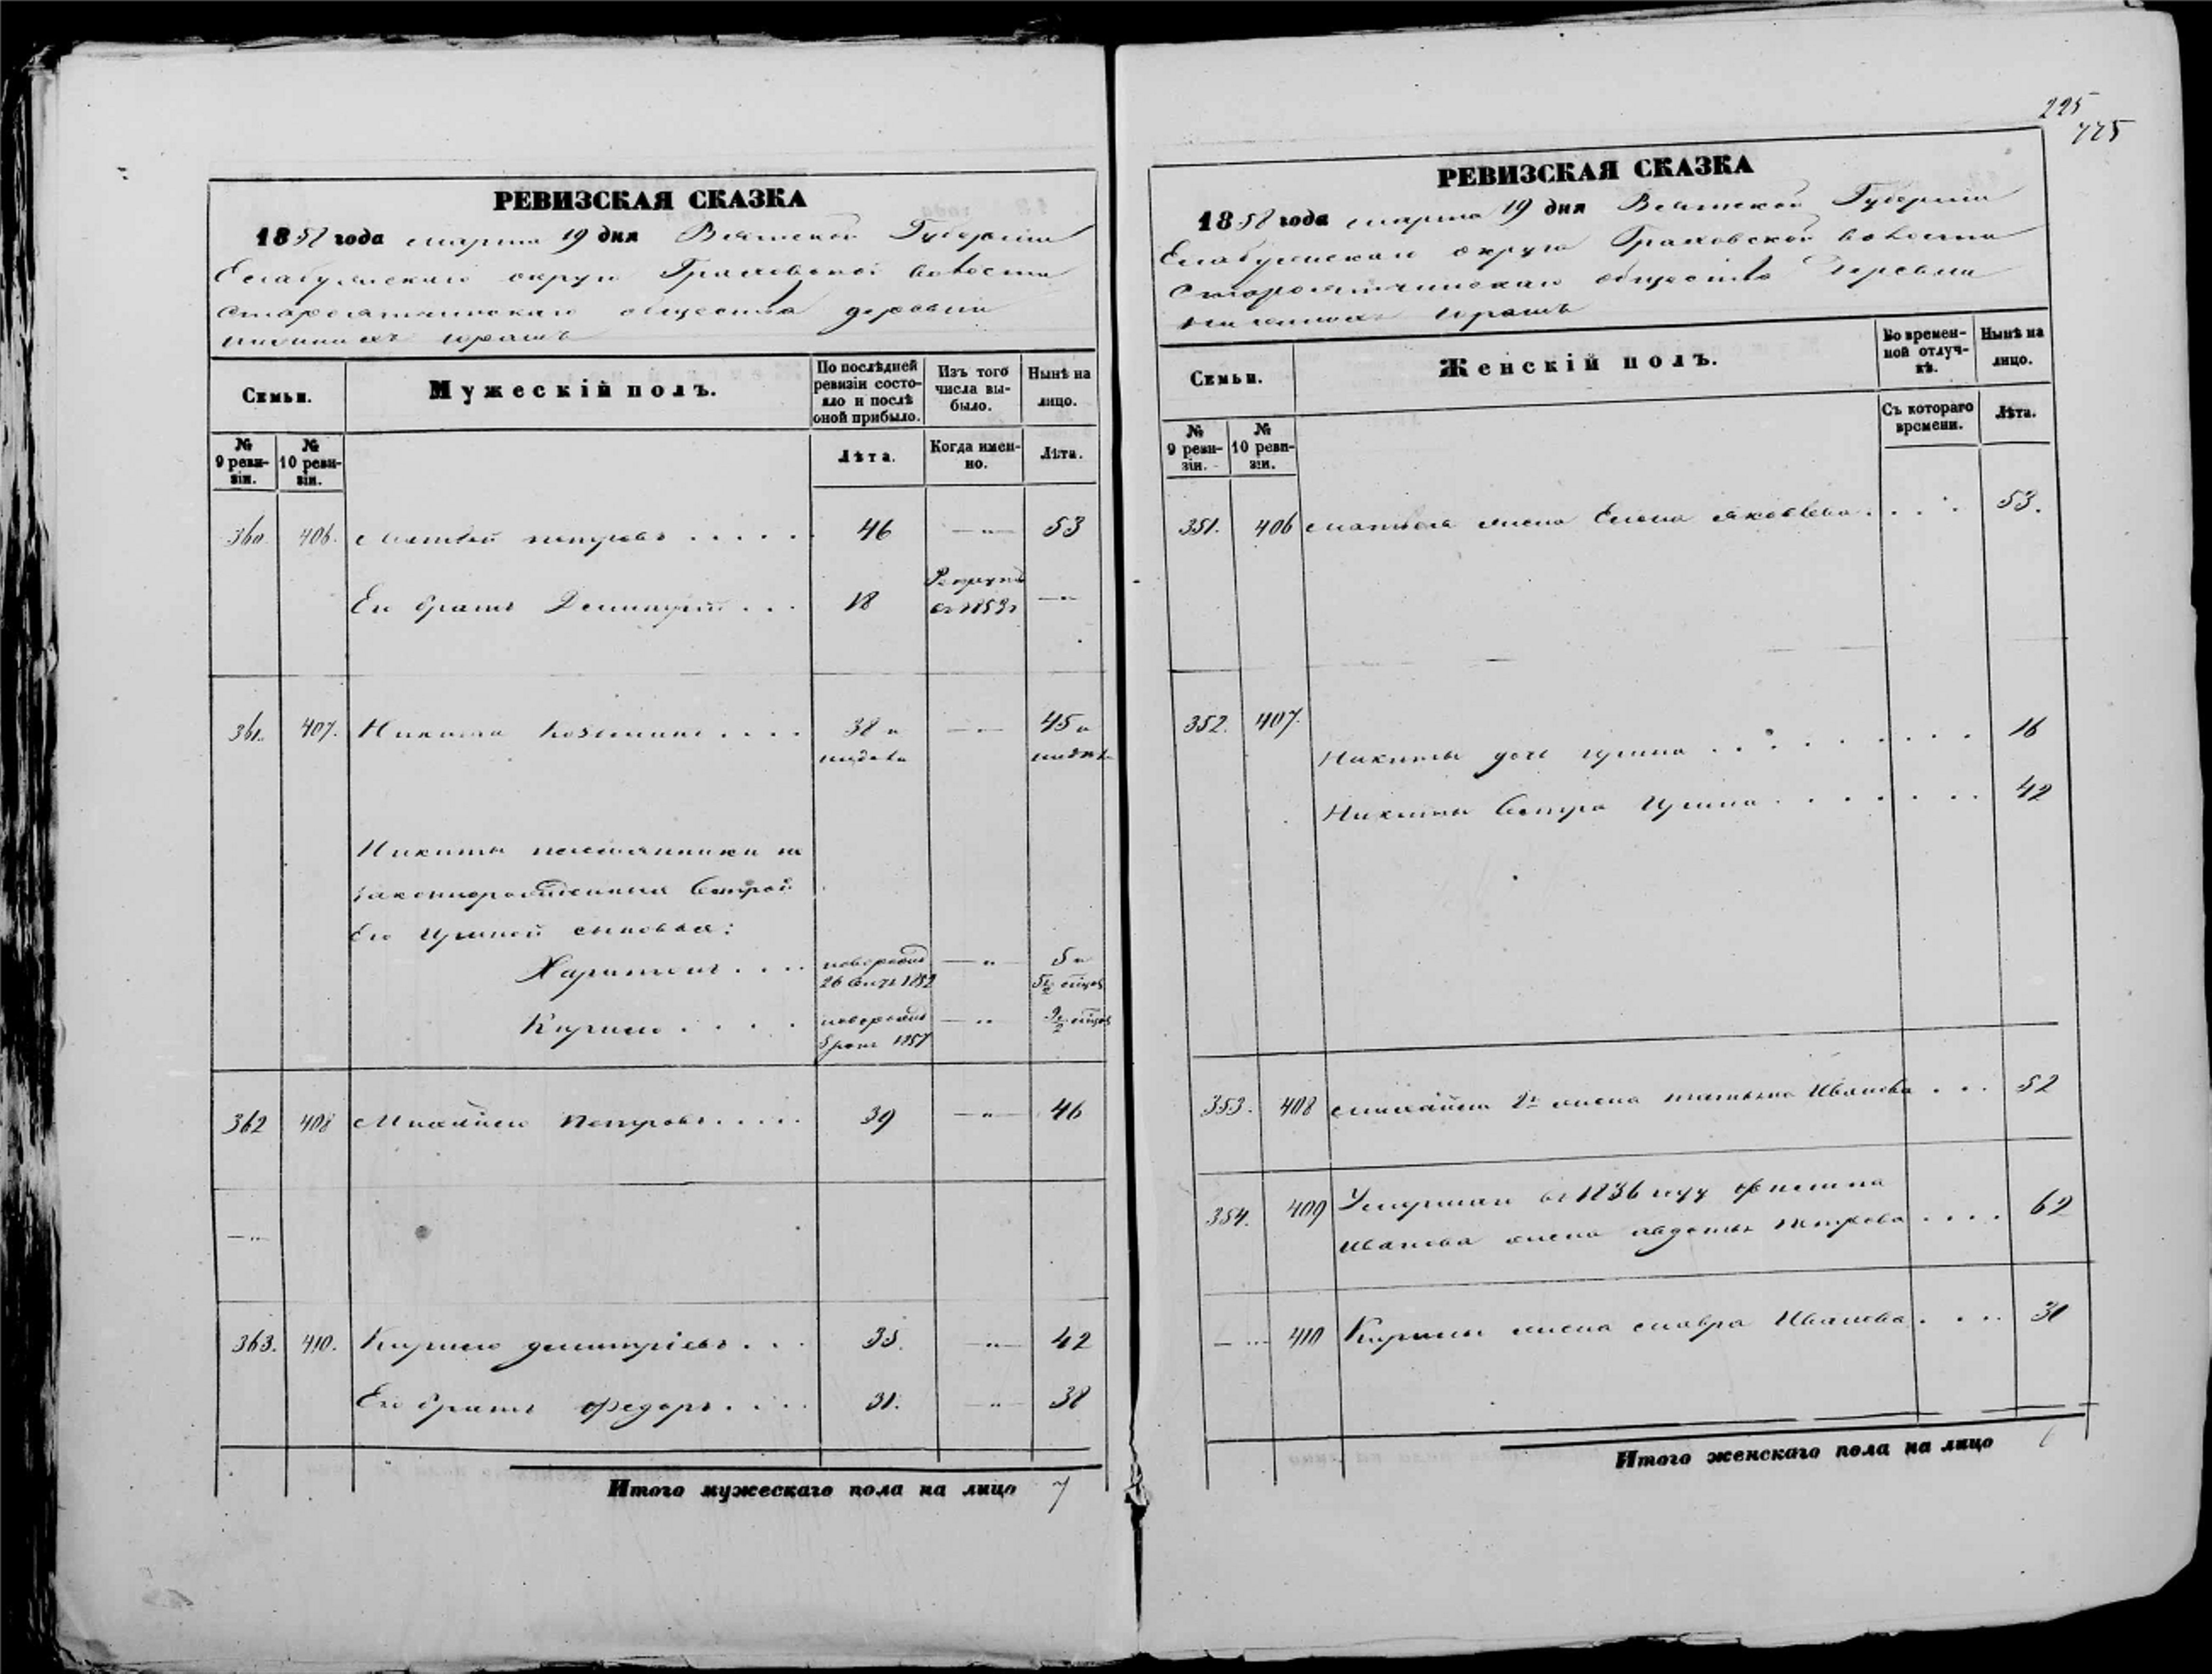 225
775
РЕВИЗСКАЯ СКАЗКА
1858 года марта 19 дня Вятской Губернии
Елабужскаго округа Граховской волости
Староятчинскаго общества деревни
Юрашъ
Семьи.
Мужескій полъ.
По послѣдней ревизіи состояло и послѣ оной прибыло.
Изъ того числа выбыло.
Нынѣ на лицо.
№ 9 ревизіи.
№ 10 ревизіи.
Лѣта.
Когда именно.
Лѣта.
360. 406. Матвей Петровъ . . . . . 46 —"— 53
Его братъ Димитрий . . . 18 Рекрутъ съ 1853г —"—
361. 407. Никита Козминъ . . . . 38 и —"— 45 и
Никиты племянники не
законнорожденныя сестрой
Его Ириной сыновья:
Харитонъ . . . . новорожд 26 Сент 1852 —"— 5 и 5½ мѣсяц
Кирило . . . . новорожд 1857 —"— мѣсяц
362 408 Михайло Петровъ . . . . . 39 —"— 46
—"—
363. 410. Кирило Димитріевъ . . . 35. —"— 42
Его братъ Федоръ . . . . 31. —"— 38
Итого мужескаго пола на лицо 7
РЕВИЗСКАЯ СКАЗКА
1858 года марта 19 дня Вятской Губернии
Елабужскаго округа Граховской волости
Староятчинскаго общества деревни
Юрашъ
Семьи.
Женскій полъ.
Во временной отлучкѣ.
Нынѣ на лицо.
№ 9 ревизіи.
№ 10 ревизіи.
Съ котораго времени.
Лѣта.
351. 406 Матвея жена Елена Яковлева . . . . 53.
352. 407.
Никиты дочь Ирина . . . . . . . . . 16
Никиты сестра Ирина . . . . . . . 42
353. 408 Михайла 2я жена Татьяна Иванова . . . 52
354. 409 Умершаго въ 1836 году Филипа
Иванова жена Авдотья Петрова . . . . 62
—"— 410 Кирилы жена Мавра Иванова . . . . 31
Итого женскаго пола на лицо